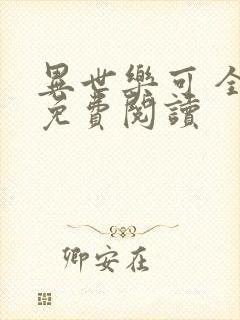 異世樂可 全
免費閱讀
卿安在